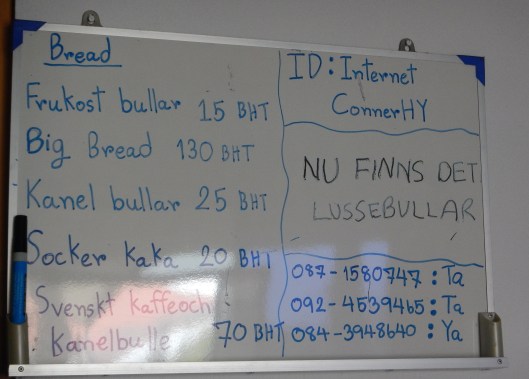 Bread
Frukost bullar 15 BHT
Big Bread 130 BHT
Kanel bullar 25 BHT
Socker kaka 20 BHT
Svenskt kaffeoch
Kanelbulle 70 BHT
ID: Internet
ConnerHY
NU FINNS DET
LUSSEBULLAR
087-1580747 : Ta
092-4539465 : Ta
084-3948640 : Ya